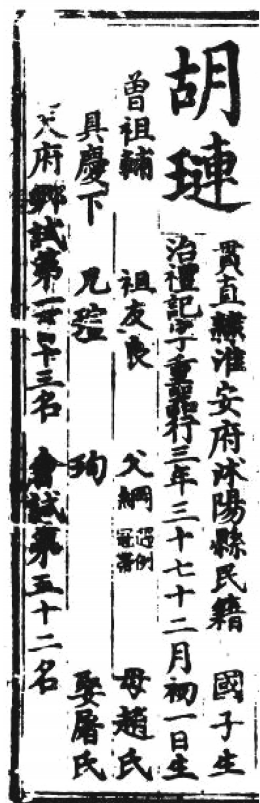 胡璉
貫直隸淮安府沭陽縣民籍 國子生
治禮記字重器行三年三十七十二月初一日生
曾祖輔 祖友良 父 母趙氏
具慶下 兄瑄 珣 娶屠氏
天府鄉試第一十三名 會試第五十二名